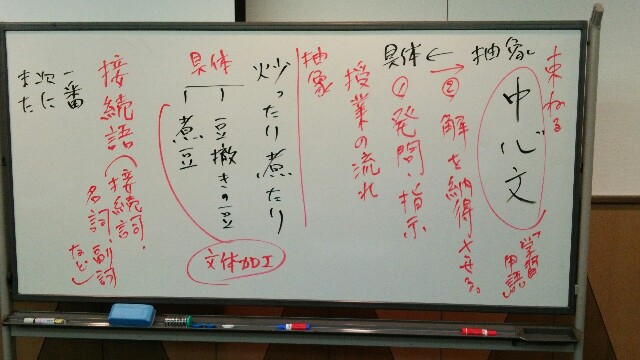 束ねる
中心文
「学習用語」
抽象
→
←
具体
②解を納得させる。
①発問・指示
授業の流れ
抽象
炒ったり煮たり
具体
豆撒きの豆
煮豆
接続語(接続詞・
名詞・副詞
など)
一番
次に
また